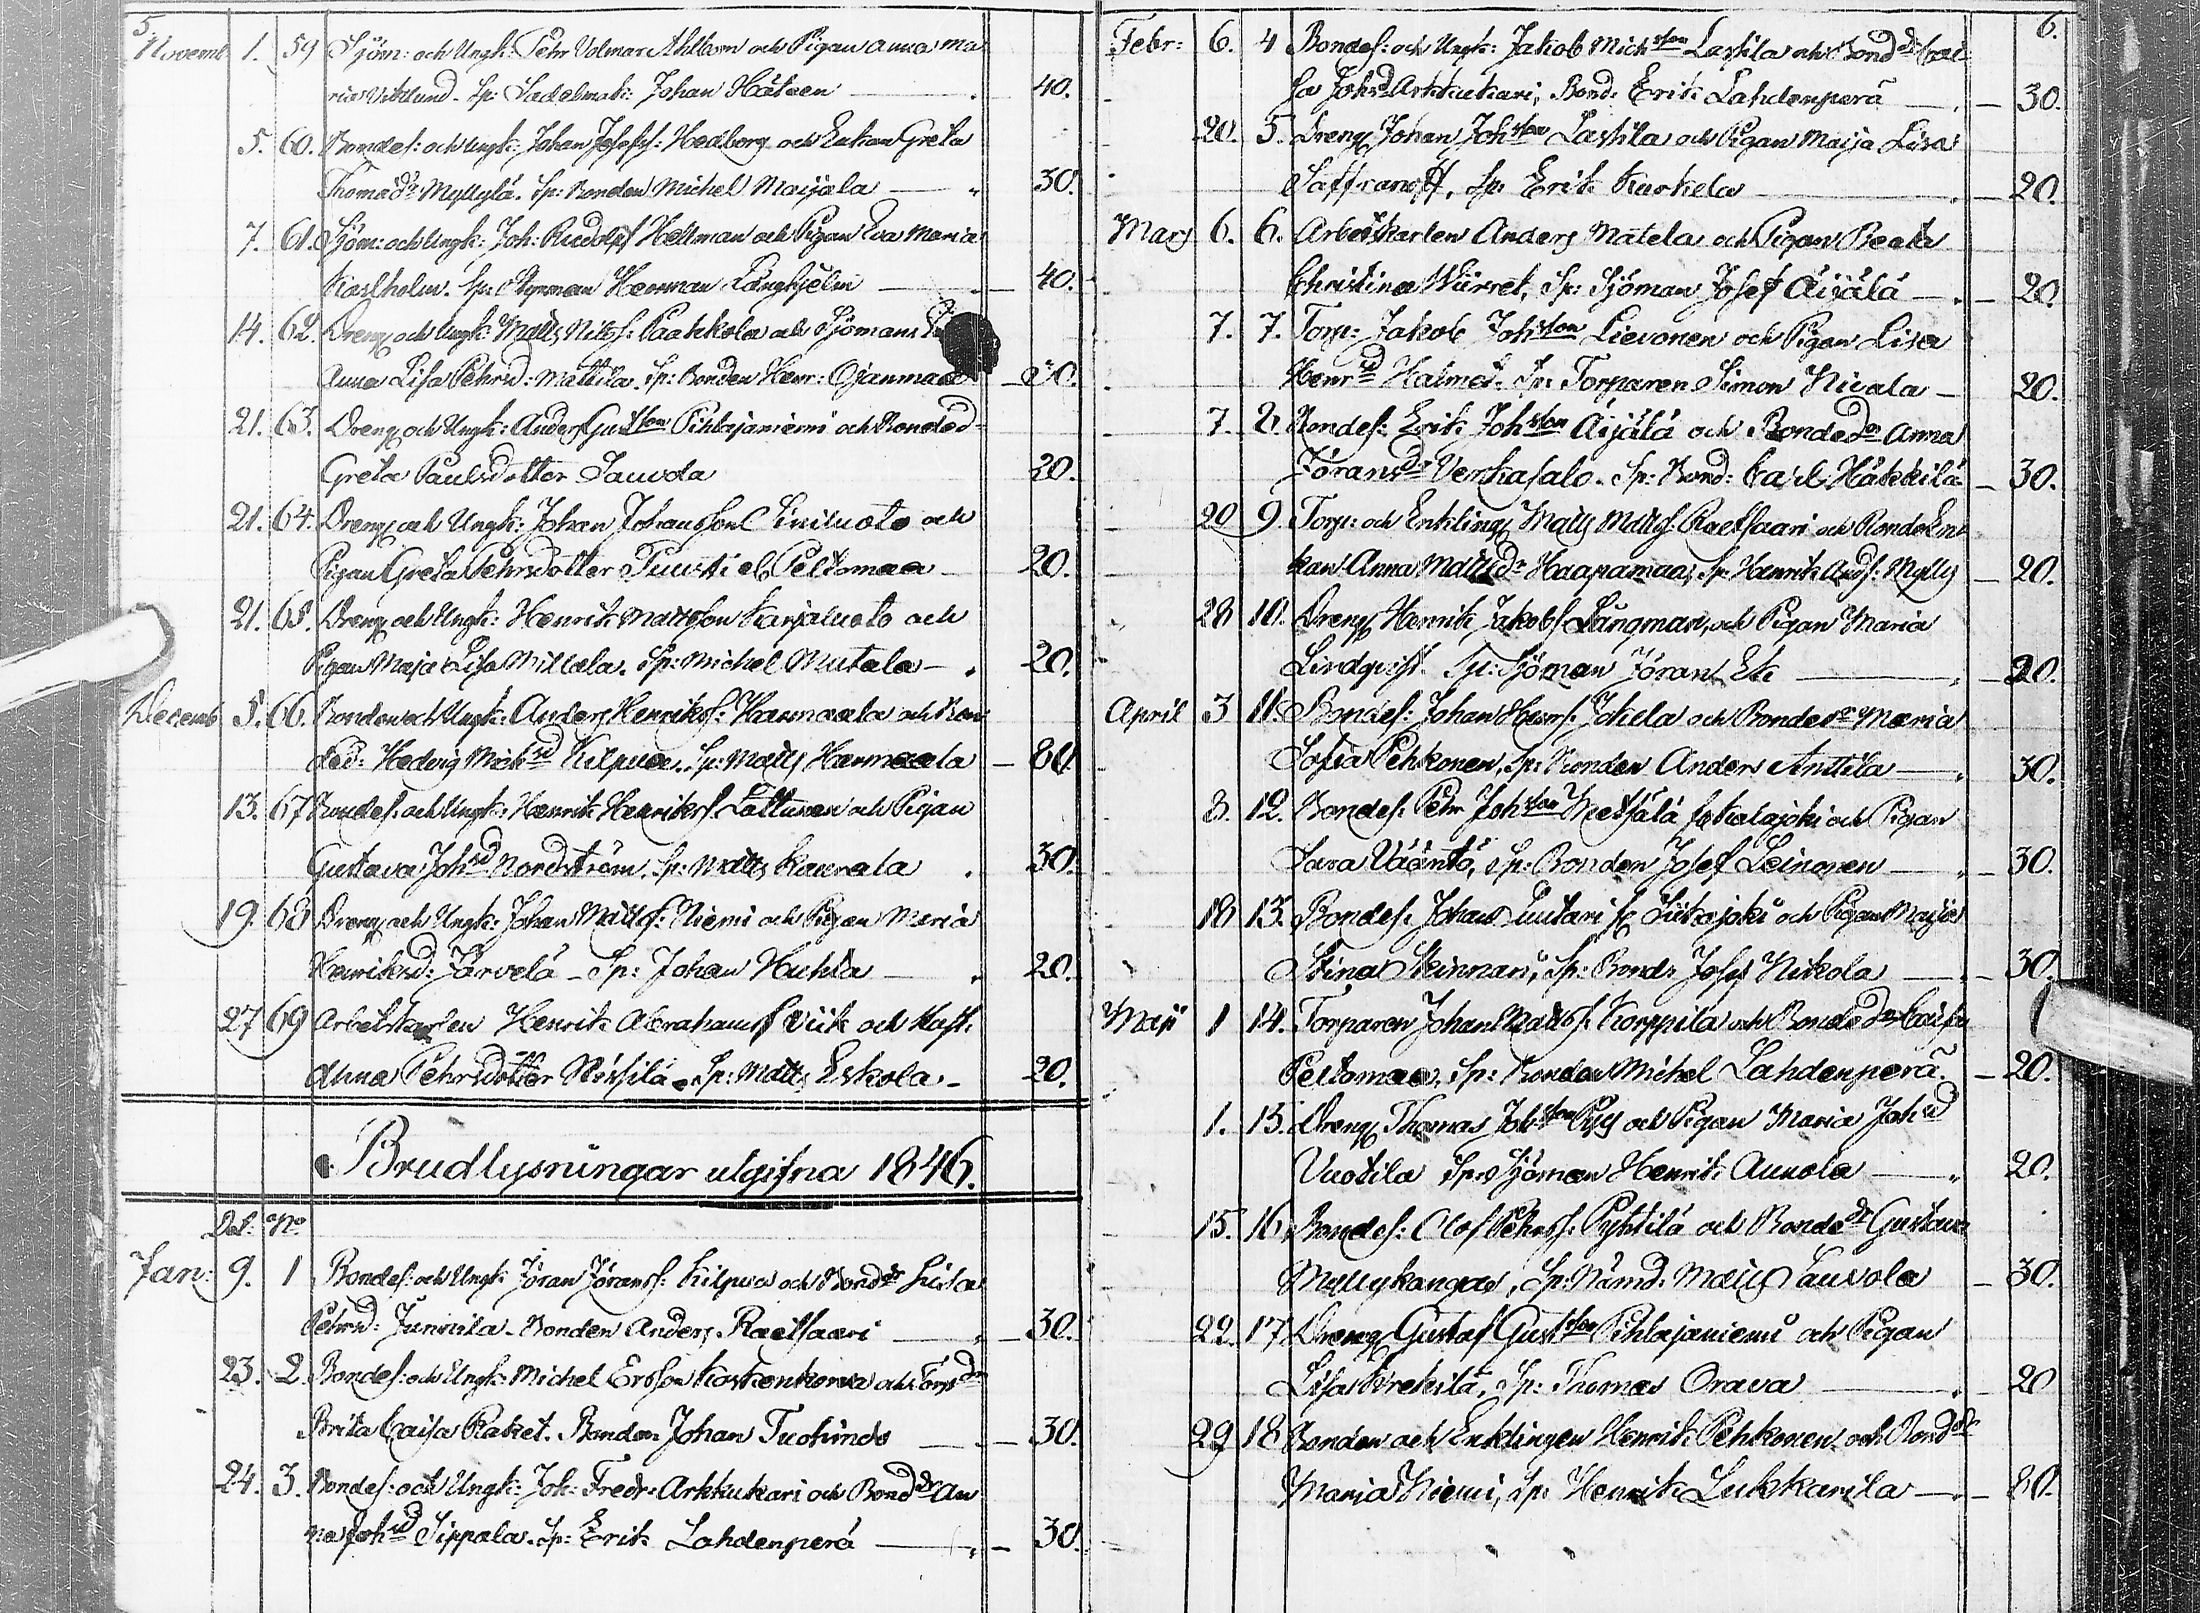 5.
Novemb. 1. 59 Sjöm: och Ungk: Pehr Volmar Ahlbom och Pigan Anna Ma
ria Viklund. Sp: Sadelmak: Johan Hätaen 40.
5. 60. Bondes: och ungk: Johan Josefss: Hedborg och Enkan Greta
Thomasdr Myllylä. Sp: Bonden Michel Maijala 30.
7. 61. Sjöm: och Ungk: Joh: Rudolf Hellman och Pigan Eva Maria
Karlholm. Sp: Styrman Herman Långhjelm 40.
14. 62. Dreng och Ungk: Matts Nilss: Paahkola och Sjömans
Anna Lisa Pehrsd: Mattila. Sp: Bonden Henr: Ojanmaa
21. 63. Dreng och Ungk: Anders Gustson Pihlajaniemi och Bonded
Greta Paulsdotter Sauvola 20.
21. 64. Dreng och Ungk: Johan Johansson Liniluoto och
Pigan Greta Pehrsdotter Puusti el. Peltomaa 20.
21. 65. Dreng och Ungk: Henrik Mattsson Karjaluoto och
Pigan Maja Lisa Mittala. Sp: Michel Mutala 20.
Decemb. 5. 66. Bonden och Ungk: Anders Henrikss: Hannaala och Bon
ded: Hedvig Michsd Kilpua. Sp: Matts Hannaala 80.
13. 67 Bondes: och Ungk: Henrik Henrikss: Lättunen och Pigan
Gustava Johsd Nordström. Sp: Matts Kaurala 30.
19. 68 Dreng och Ungk: Johan Mattss: Niemi och Pigan Maria
Henriksd: Järvelä - Sp: Johan Huhta 20.
27 69 Arbetskarlen Henrik Abrahamss Wiik och
Anna Pehrsdotter Sp: Matts Eskola 20.
Brudlysningar utgifna 1846.
Dat: No
Jan: 9. 1 Bondes: och Ungk: Jöran Jöranss: Kilpua och Bonddr Lisa
Pehrsd: Junnila. Bonden Anders Raetsaari 30.
23. 2. Bondes: och Ungk: Michel Ersson Koskenkorva och Torpdr
Brita Caisa Raket. Bonden Johan Tuohimo 30.
24. 3. Bondes: och Ungk: Joh: Fredr: Arkkukari och Bonddr An
na Johsd Sippala. Sp: Erik Lahdenperä 30.
6.
Febr: 6. 4 Bondes: och Ungk: Jakob Michson Lastila och Bonddr Cai
sa Johsd Arkkukari, Bond: Erik Lahdenperä 30.
20. 5. Dreng Johan Johson Lastila och Pigan Maija Lisa
Saffranoff, Sp: Erik Kuokela 20.
Mars 6. 6. Arbetskarlen Anders Matela och Pigan Beata
Christina Wiirret, Sp: Sjöman Josef Äijälä 20.
7. 7. Torp: Jakob Johsson Lievonen och Pigan Lisa
Henrsd Halmet. Sp: Torparen Simon Nivala 20.
7. 8. Bondes: Erik Johsson Äijälä och Bondedr Anna
Jöransdr Verkasalo. Sp: Bond: Carl Häkkilä 30.
20 9. Torp: och Enkling Matts Mattss: Raetsaari och BondeEn
kan Anna Mattsdr Haapamaa, Sp: Henrik Ands: Mylly 20.
28 10. Dreng Henrik Jakobs Långman, och Pigan Maria
Lindqvist. Sp: Sjöman Jöran Ek 20.
April 3 11. Bondes: Johan Henrs: Jokela och Bondedr Maria
Sofia Pehkonen, Sp: Bonden Anders Anttila 30.
8. 12. Bondes: Pehr Johsson Metsälä fr Kalajoki och Pigan
Sara Vääntö, Sp: Bonden Josef Leinonen 30.
18 13. Bondes: Johan Luutari fr Siikajoki och Pigan Maija
Stina Skinnari, Sp: Bond: Josef Nikola 30.
Maji 1 14. Torparen Johan Mattss: Korppila och Bondedr Caisa
Peltomaa, Sp: Bonden Michel Lahdenperä 20.
1. 15. Dreng Thomas Johsson Pyy och Pigan Maria Johsd
Vuotila Sp: Sjöman Henrik Aunola 20.
15. 16. Bondes: Olof Pehrss: Pyhtilä och Bondedr Gustava
Myllykangas, Sp: Nämd. Matts Sauvola 30.
22. 17 Dreng Gustaf Gustson Pihlajaniemi och Pigan
Lisa Krekilä, Sp: Thomas Orava 20
29 18 Bonden och Enklingen Henrik Pehkonen och Bonddr
Maria Niemi, Sp: Henrik Lukkarila 80.